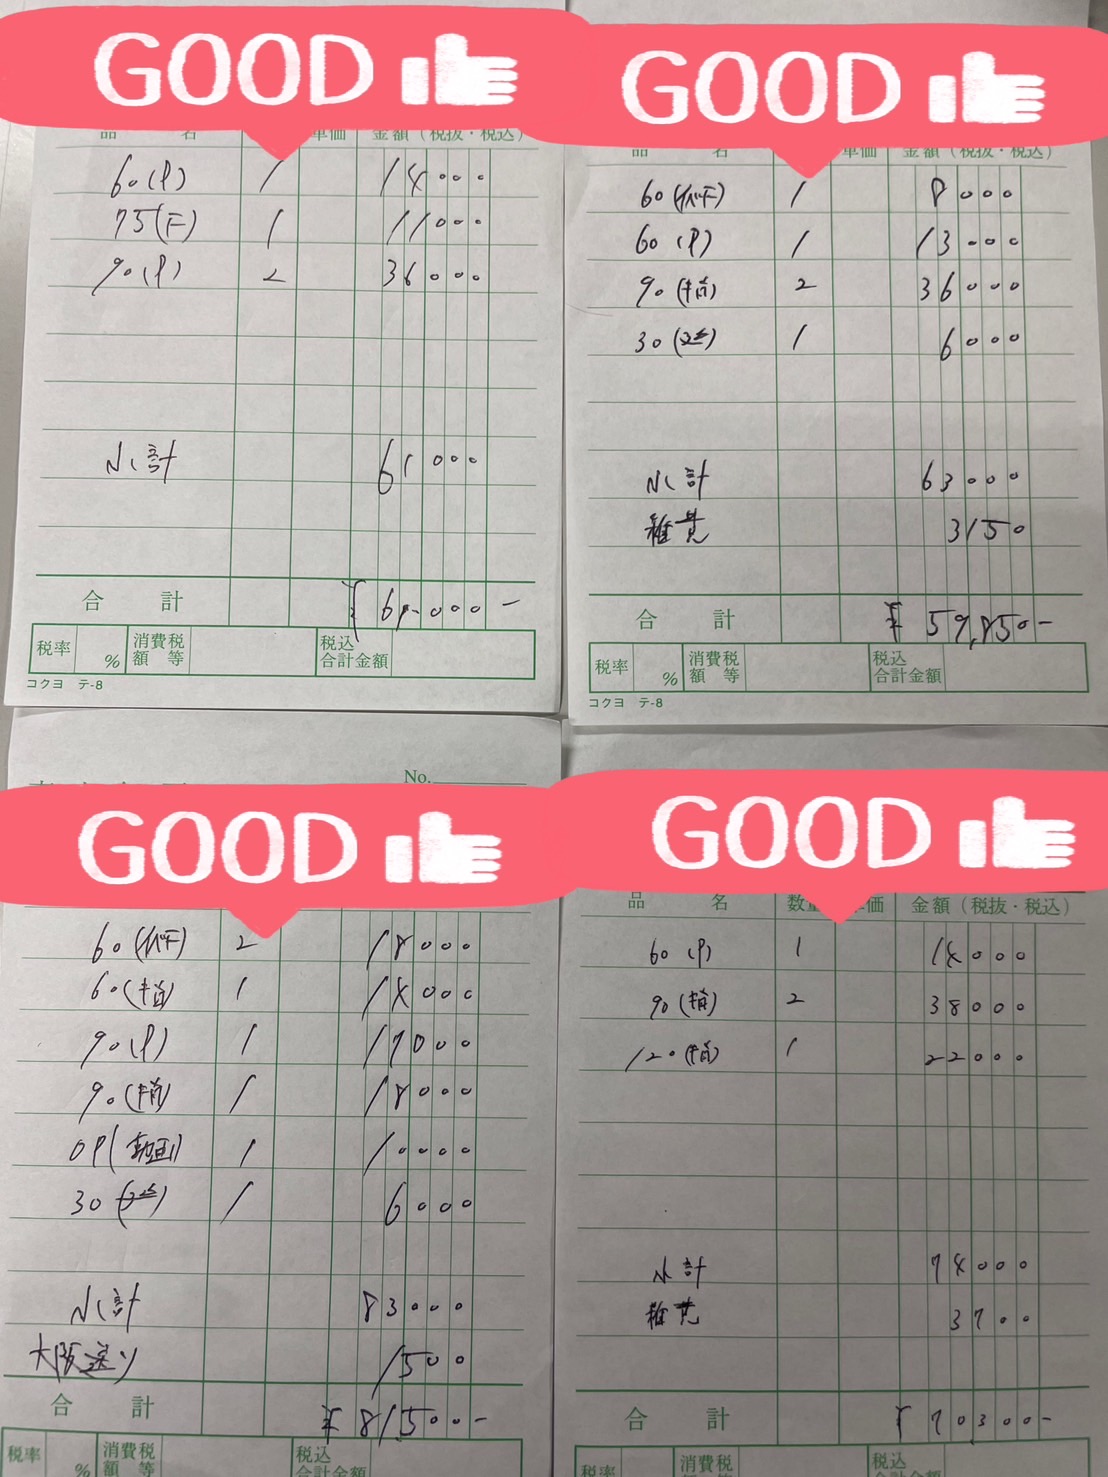 GOOD
品 名 単価 金額（税抜・税込）
60(P) 1 14000
75(F) 1 11000
90(P) 2 36000
小計 61000
合計 ¥61,000-
税率 % 消費税額等 税込合計金額
コクヨ テ-8
GOOD
品 名 単価 金額（税抜・税込）
60(イベF) 1 8000
60(P) 1 13000
90(指) 2 36000
30 1 6000
小計 63000
雑費 3150
合計 ¥59,850-
税率 % 消費税額等 税込合計金額
コクヨ テ-8
No.
GOOD
60(イベF) 2 18000
60(指) 1 14000
90(P) 1 17000
90(指) 1 18000
OP(動画) 1 10000
30 1 6000
小計 83000
大阪送り 1500
合計 ¥81500-
税率 % 消費税額等 税込合計金額
GOOD
品 名 数量 単価 金額（税抜・税込）
60(P) 1 14000
90(指) 2 38000
120(指) 1 22000
小計 74000
雑費 3700
合計 ¥70300-
税率 消費税額等 税込合計金額